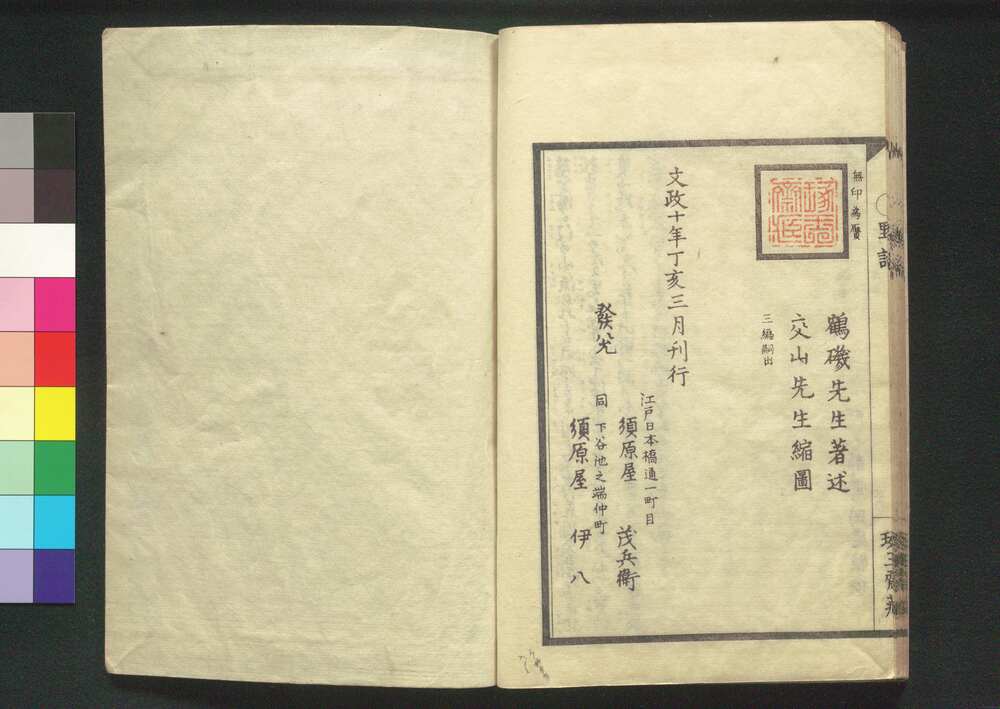 無印為贋
鶴磯先生著述
交山先生縮圖
三編嗣出
文政十年丁亥三月刊行
發兌
江戸日本橋通一町目
須原屋 茂兵衛
同 下谷池之端仲町
須原屋 伊八